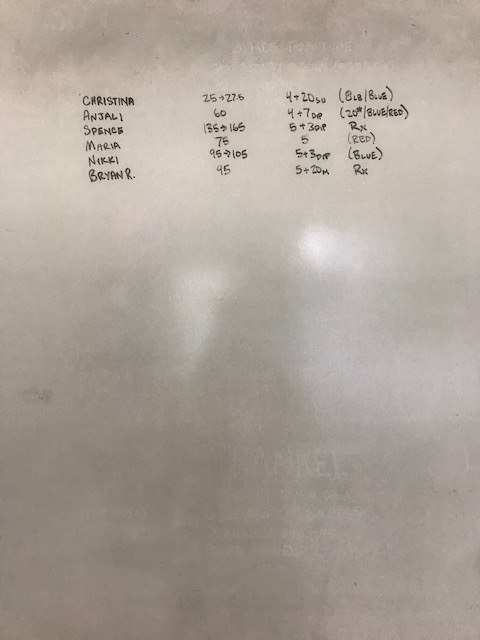 CHRISTINA 25→27.5 4+20SU (8LB/BLUE)
ANJALI 60 4+7DP (20#/BLUE/RED)
SPENCE 135→165 5+3DIP RX
MARIA 75 5 (RED)
NIKKI 95→105 5+3DIP (BLUE)
BRYAN R. 95 5+20M RX